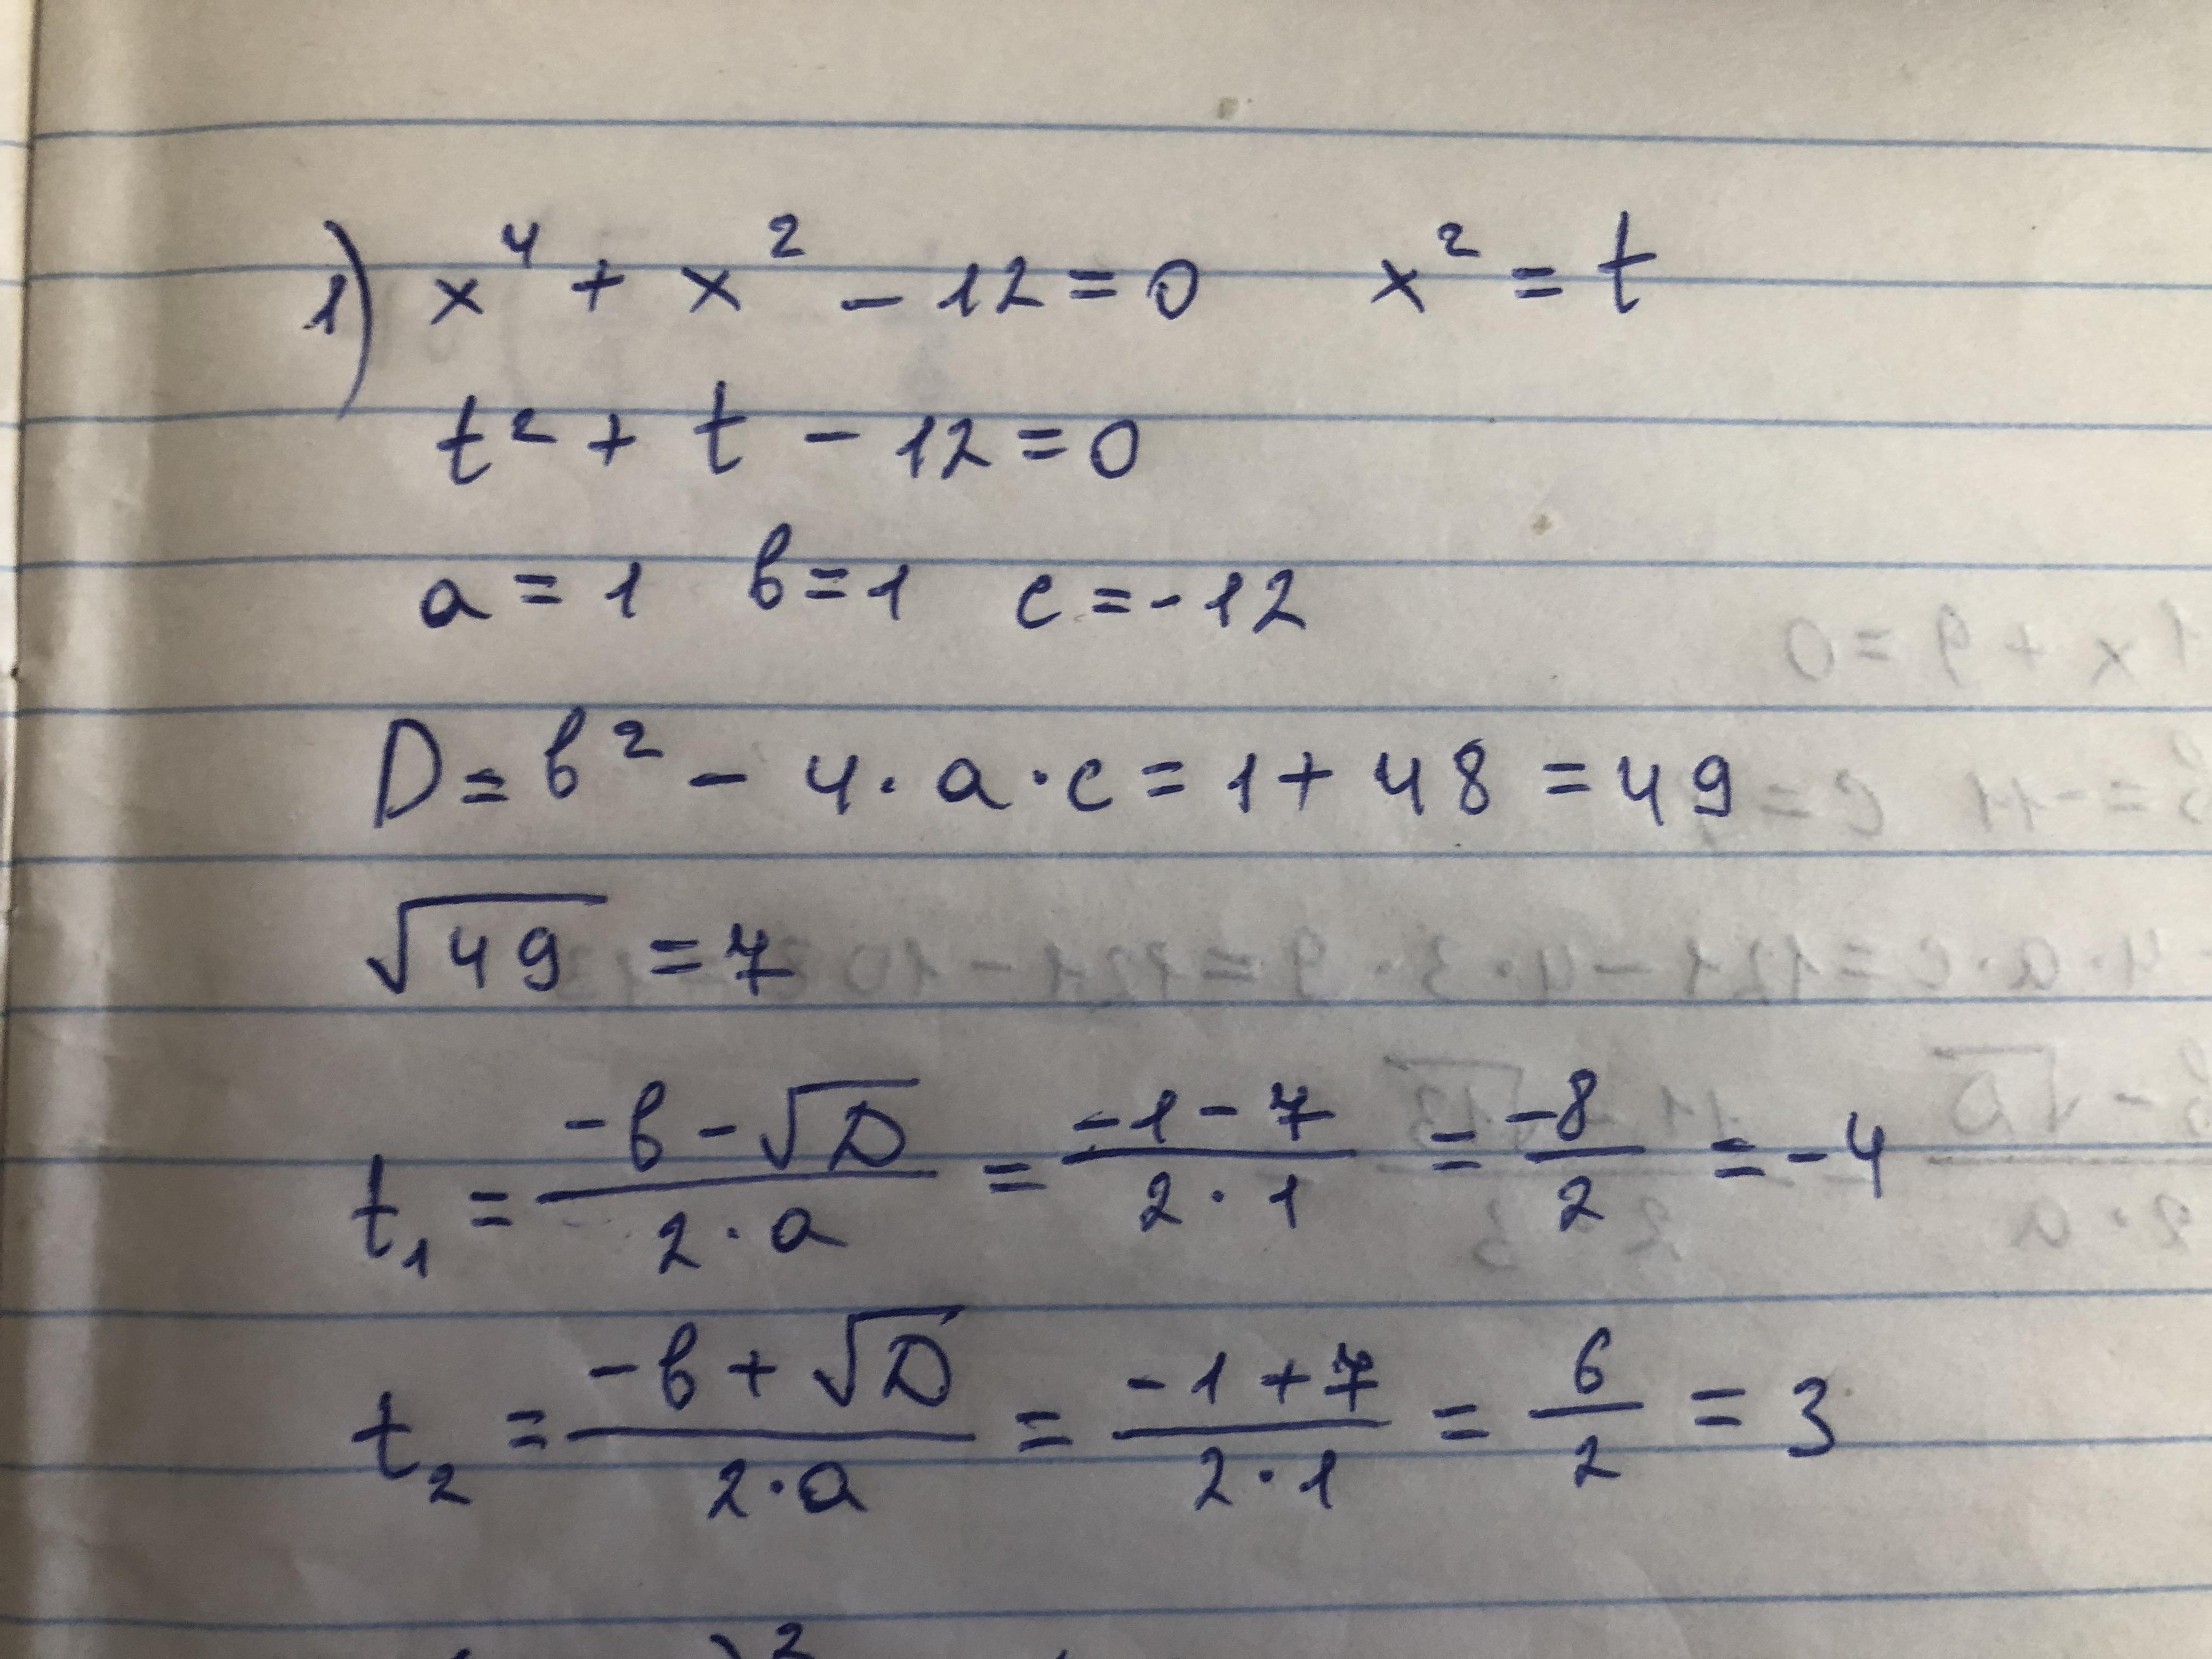 1) x⁴ + x² - 12 = 0    x² = t
t² + t - 12 = 0
a = 1  b = 1  c = -12
D = b² - 4 · a · c = 1 + 48 = 49
√49 = 7
t₁ = (-b - √D)/(2 · a) = (-1 - 7)/(2 · 1) = -8/2 = -4
t₂ = (-b + √D)/(2 · a) = (-1 + 7)/(2 · 1) = 6/2 = 3